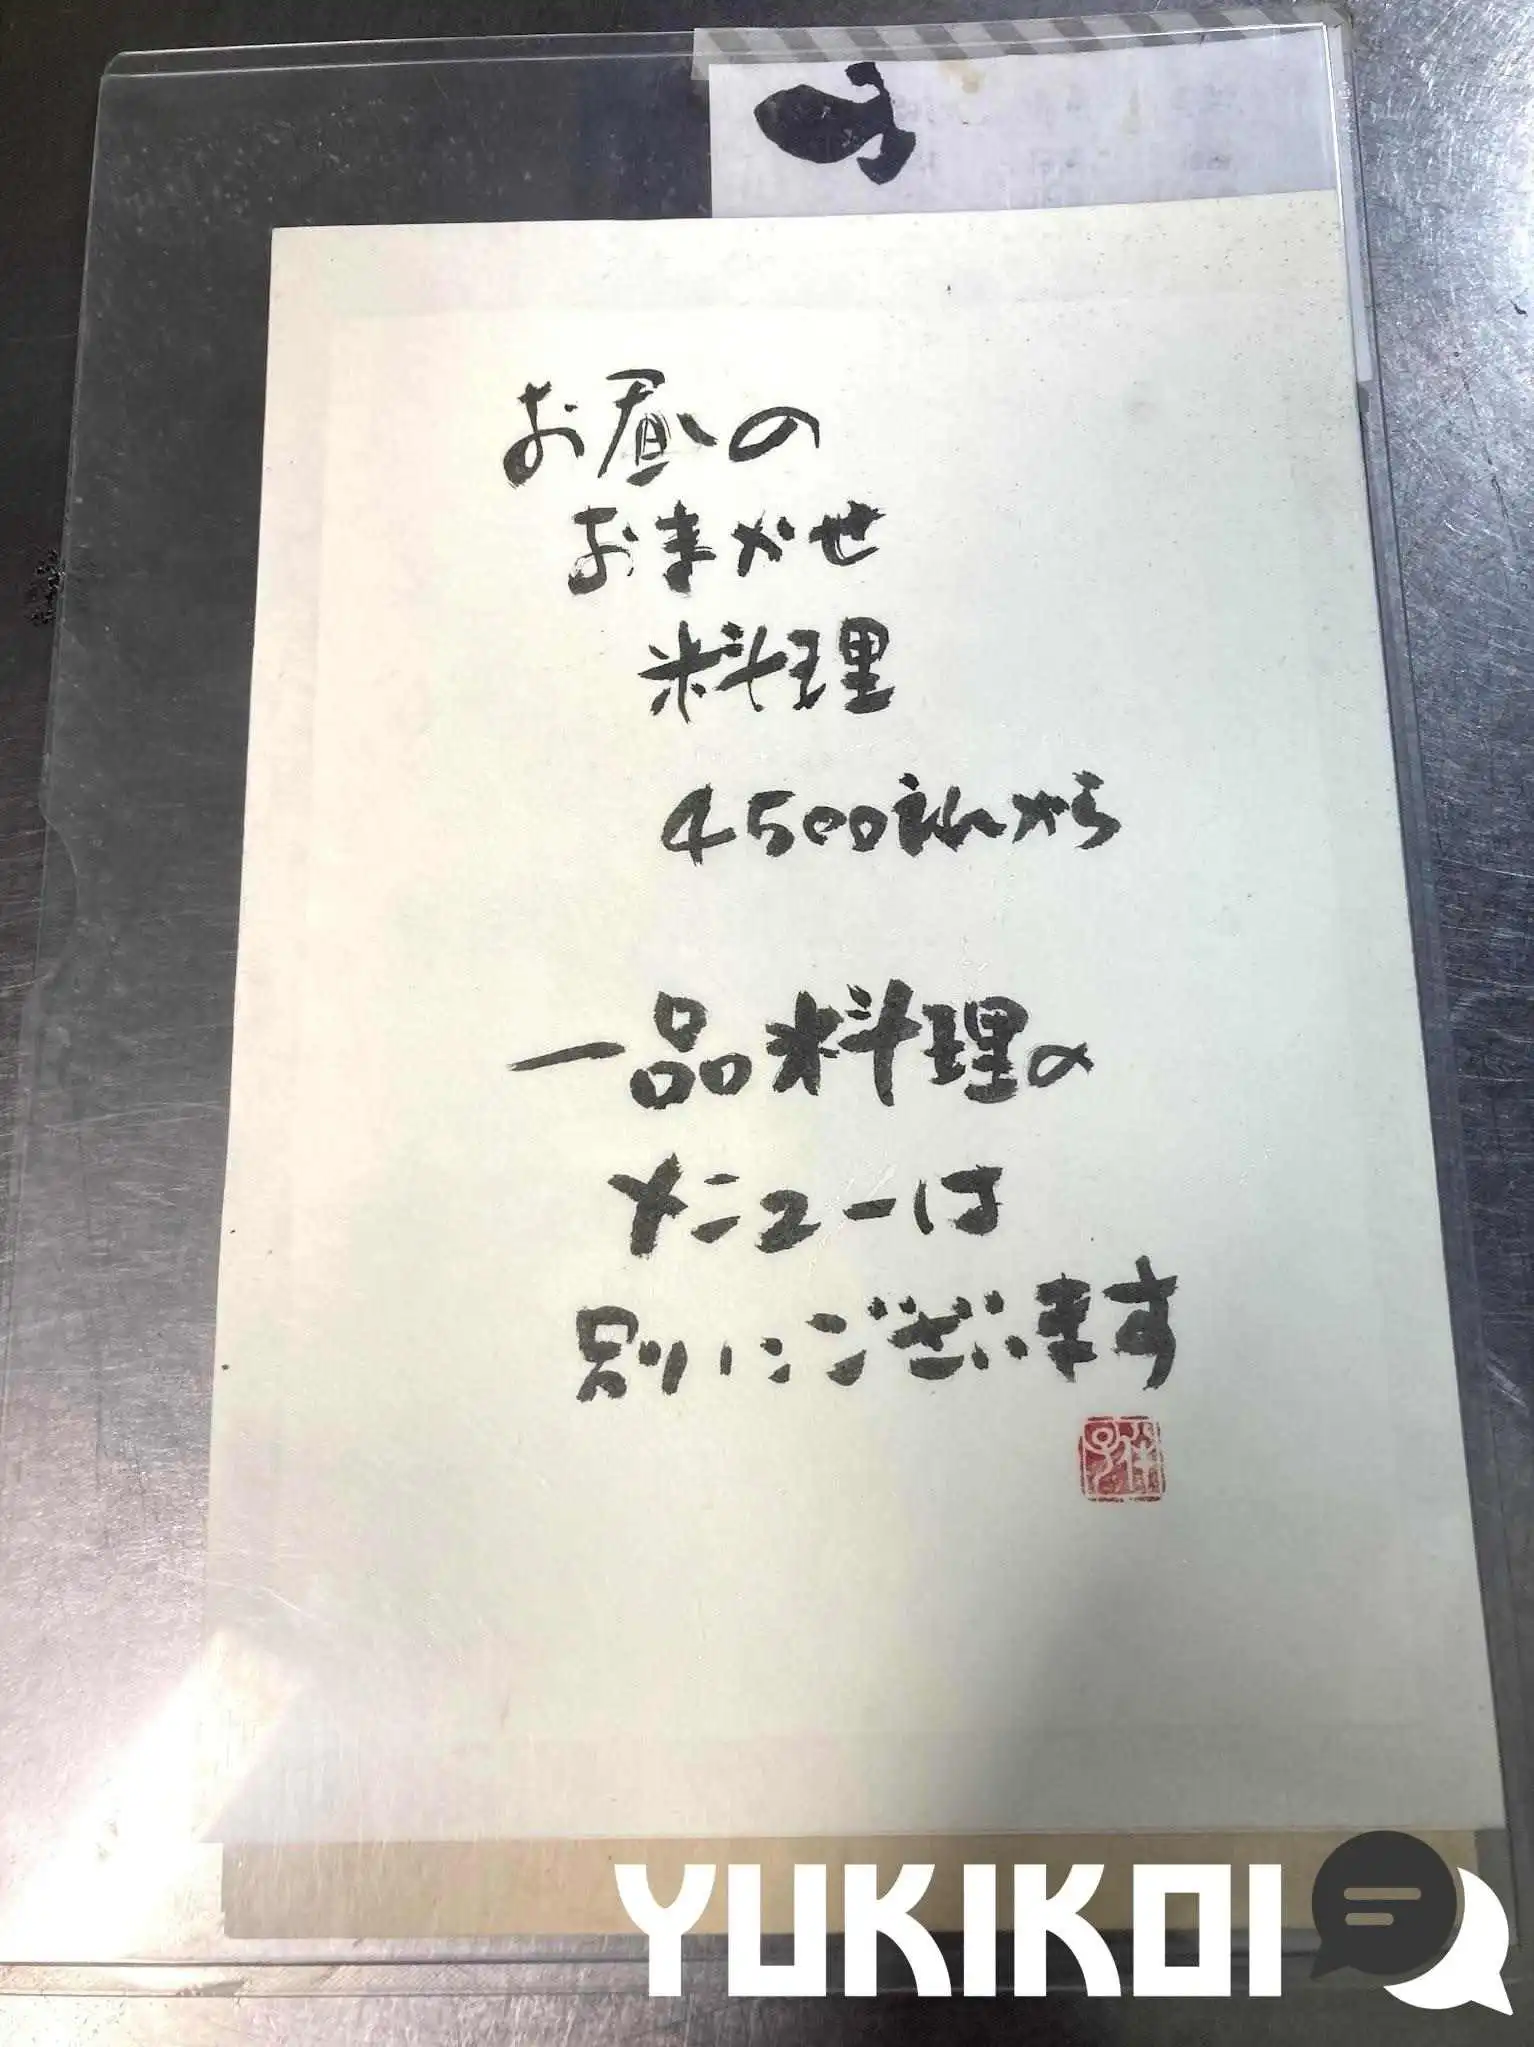 お昼の
おまかせ
料理
4500円から
一品料理の
メニューは
別にございます
YUKIKOI